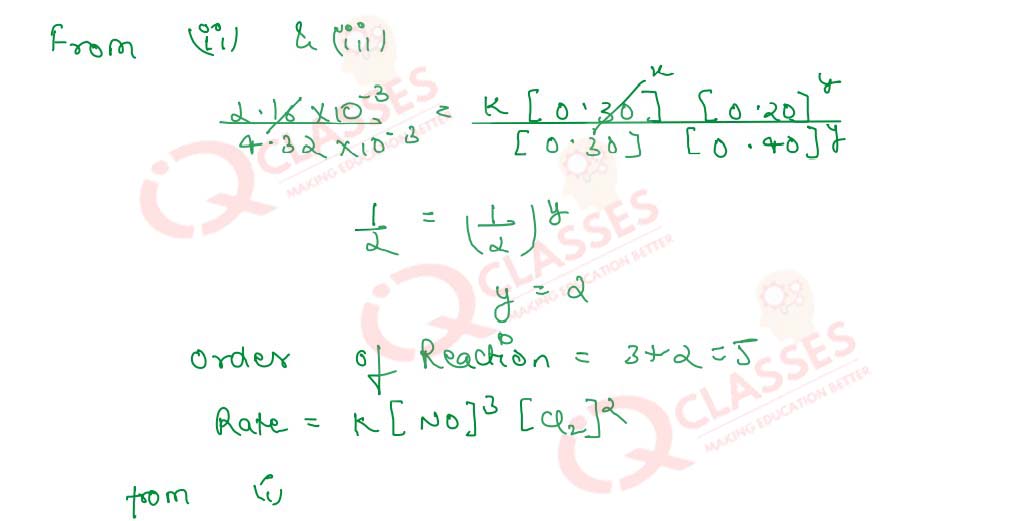 From (ii) & (iii)
2.16 ×10⁻³ / 4.32 ×10⁻³ = K [0.30]ˣ [0.20]ʸ / [0.30] [0.40]ʸ
1/2 = (1/2)ʸ
y = 2
order of Reaction = 3+2=5
Rate = K[NO]³ [Cl₂]²
from (i)
IQ CLASSES
MAKING EDUCATION BETTER
IQ CLASSES
MAKING EDUCATION BETTER
IQ CLASSES
MAKING EDUCATION BETTER